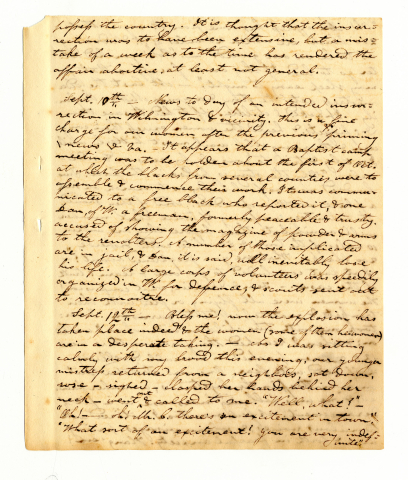 possess the country. It is thought that the insur-
rection was to have been extensive, but a mis-
take of a week as to the time has rendered the
affair abortive, at least not general.
Sept. — News to day of an intended insur-
rection in Wilmington & vicinity. this is a fine
charge for our women after the previous priming
news & Va. It appears that a Baptist camp
meeting was to be holden about the first of Oct.
at which the blacks from several counties were to
assemble & commence their work. It was commu-
nicated to a free black who reported it, & one
Dan, of W. a freeman, formerly peaceable & trusty
accused of showing the magazine of powder & arms
to the revolters. A number of those implicated
are in jail, & Dan, it is said, will inevitably lose
his life. A large corps of volunteers was speedily
organized in W. for defence, & scouts sent out
to reconnoitre.
Sept. — Bless me! now the explosion has
taken place indeed & the women (some of them however)
are in a desperate taking. — As I was sitting
calmly with my brood this evening, our younger
mistress returned from a neighbors, sat down,
rose — sighed — clasped her hands behind her
neck — went out & called to me. "Well, what?" —
"Oh! — oh! Mr. B. there's an excitement in town."
"What sort of an excitement! you are very indef-
inite."